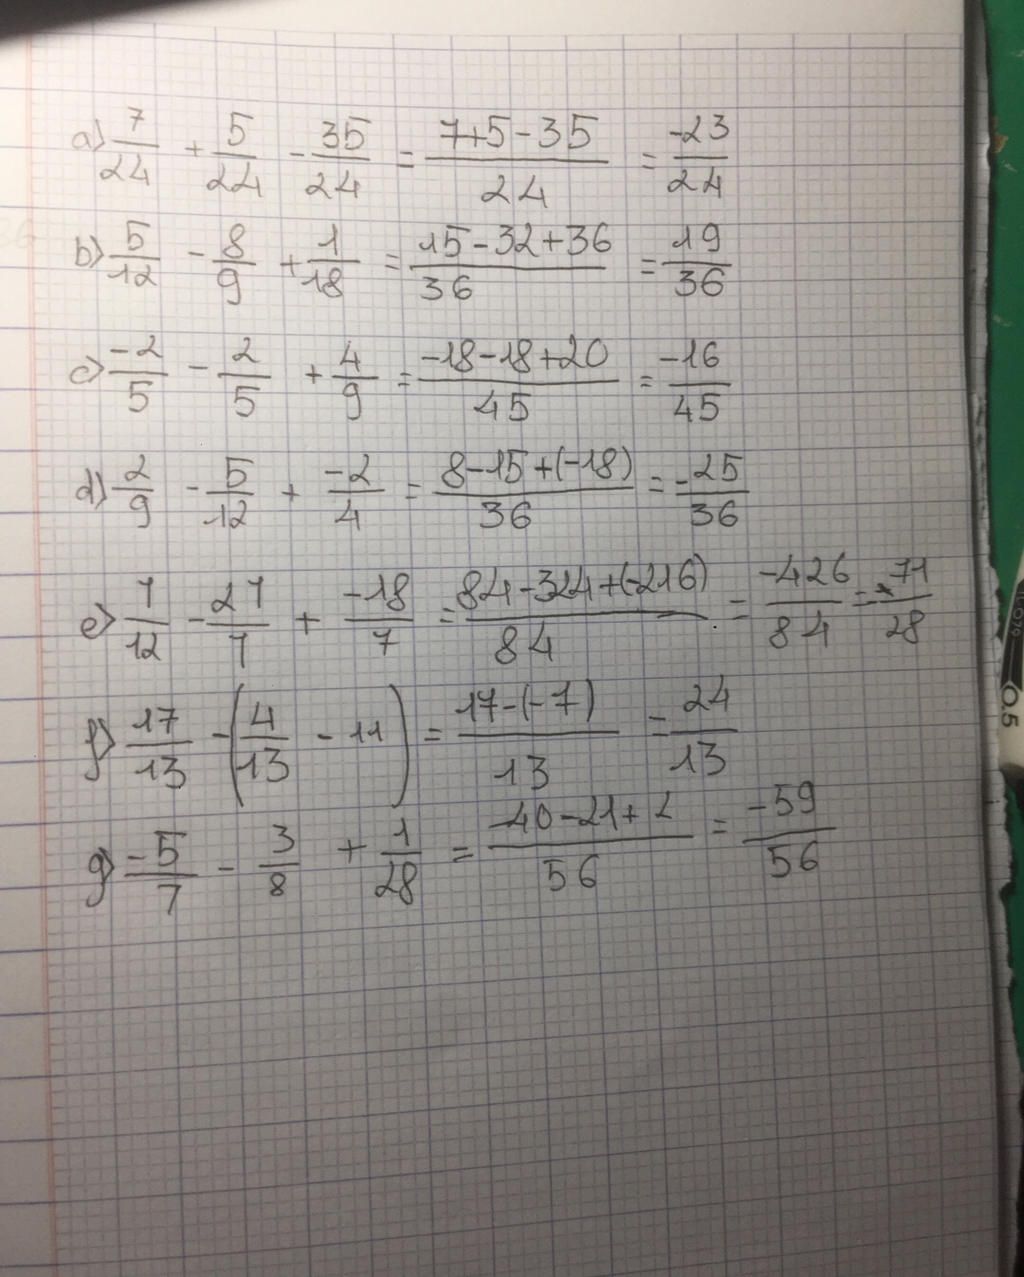 a) 7/24 + 5/24 - 35/24 = 7+5-35/24 = -23/24
b) 5/12 - 8/9 + 1/18 = 15-32+36/36 = 19/36
c) -2/5 - 2/5 + 4/9 = -18-18+20/45 = -16/45
d) 2/9 - 5/12 + -2/4 = 8-15+(-18)/36 = -25/36
e) 7/12 - 27/7 + -18/7 = 84-324+(-216)/84 = -426/84 = -71/28
f) 17/13 - (4/13 - 11) = 17-(-7)/13 = 24/13
g) -5/7 - 3/8 + 1/28 = -40-21+2/56 = -59/56
0.5